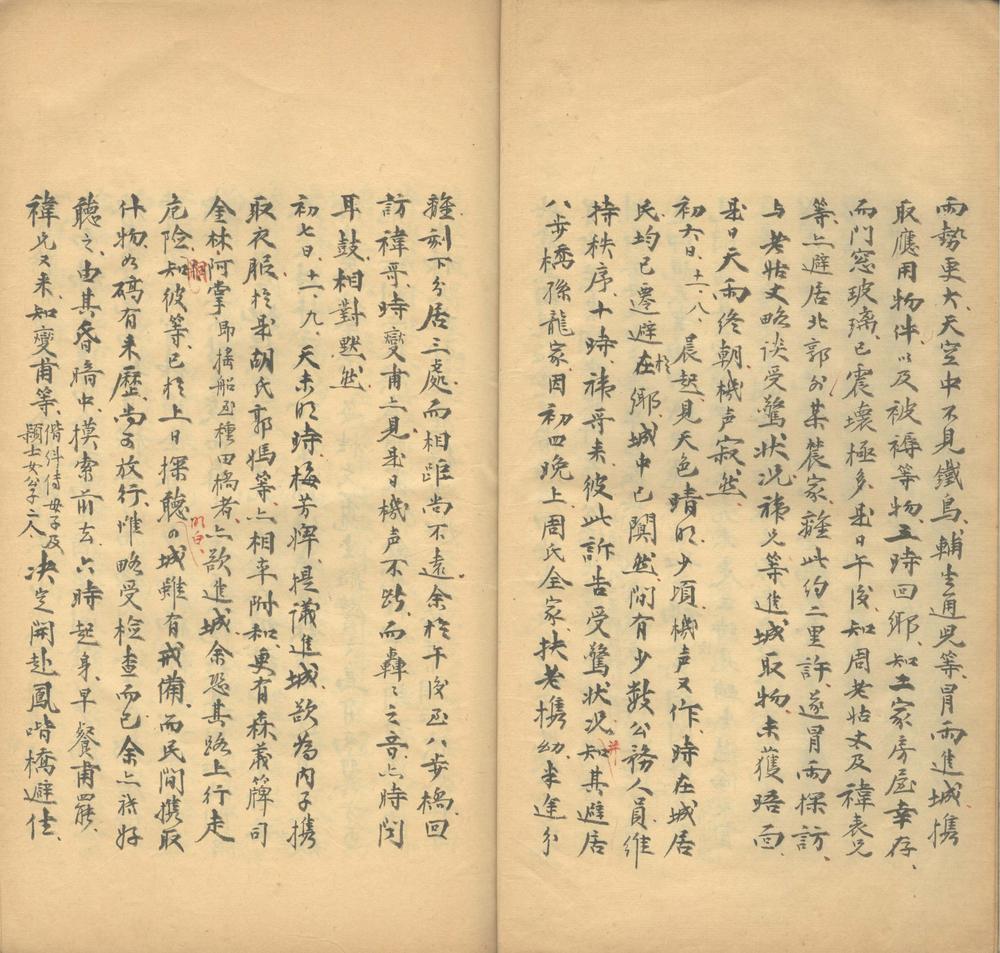 雨勢更大、天空中不見鐵鳥、輔生通兒等、冒雨進城、携
取應用物件、以及被褥等物、五時回鄉、知二家房屋幸存、
而門窓玻璃、已震壞極多、是日午後、知周老姑太及禕表兄
等、亦避居北郭外某農家、離此約二里許、遂冒雨探訪、
与老姑丈略談受驚狀况、禕兄等進城取物、未獲晤面、
是日天雨終朝、機声寂然、
初六日、十一、八、晨起、見天色晴明、少頃機声又作、時在城居
民、均已遷避在於鄉、城中已闃然、間有少数公務人員、維
持秩序、十時、禕哥来、彼此訴告受驚狀况、并知其避居
八步橋孫龍家、因初四晚上周氏全家、扶老携幼、来連夕
離、刻下分居三處、而相距尚不遠、余於午後至八步橋回
訪禕哥、時變甫亦見、是日機声不断、而轟々之音、亦時聞
耳鼓、相對默然、
初七日、十一、九、天未明時、梅芳婢、提議進城、欲為內子携
取衣服、於是胡氏郭媽等、亦相率附和、更有森義牌司
全林、阿掌、即搖船至種田橋者、亦欲進城、余恐其路上行走
危險、嗣知彼等、已於上日探聽明白、城雖有戒備、而民間携取
什物、如確有来歷、尚可放行、惟略受检查而已、余亦祇好
聽之、由其昏暗中、摸索前去、六時起身、早餐甫罷、
禕兄又来、知變甫等、偕侍母子及穎士女公子二人決定開赴鳳喈橋避住、